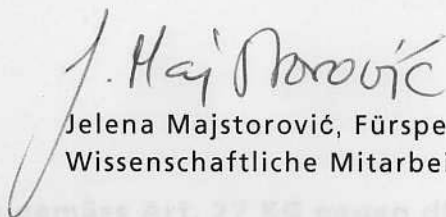 J. Majstorović
Jelena Majstorović, Fürspe
Wissenschaftliche Mitarbei